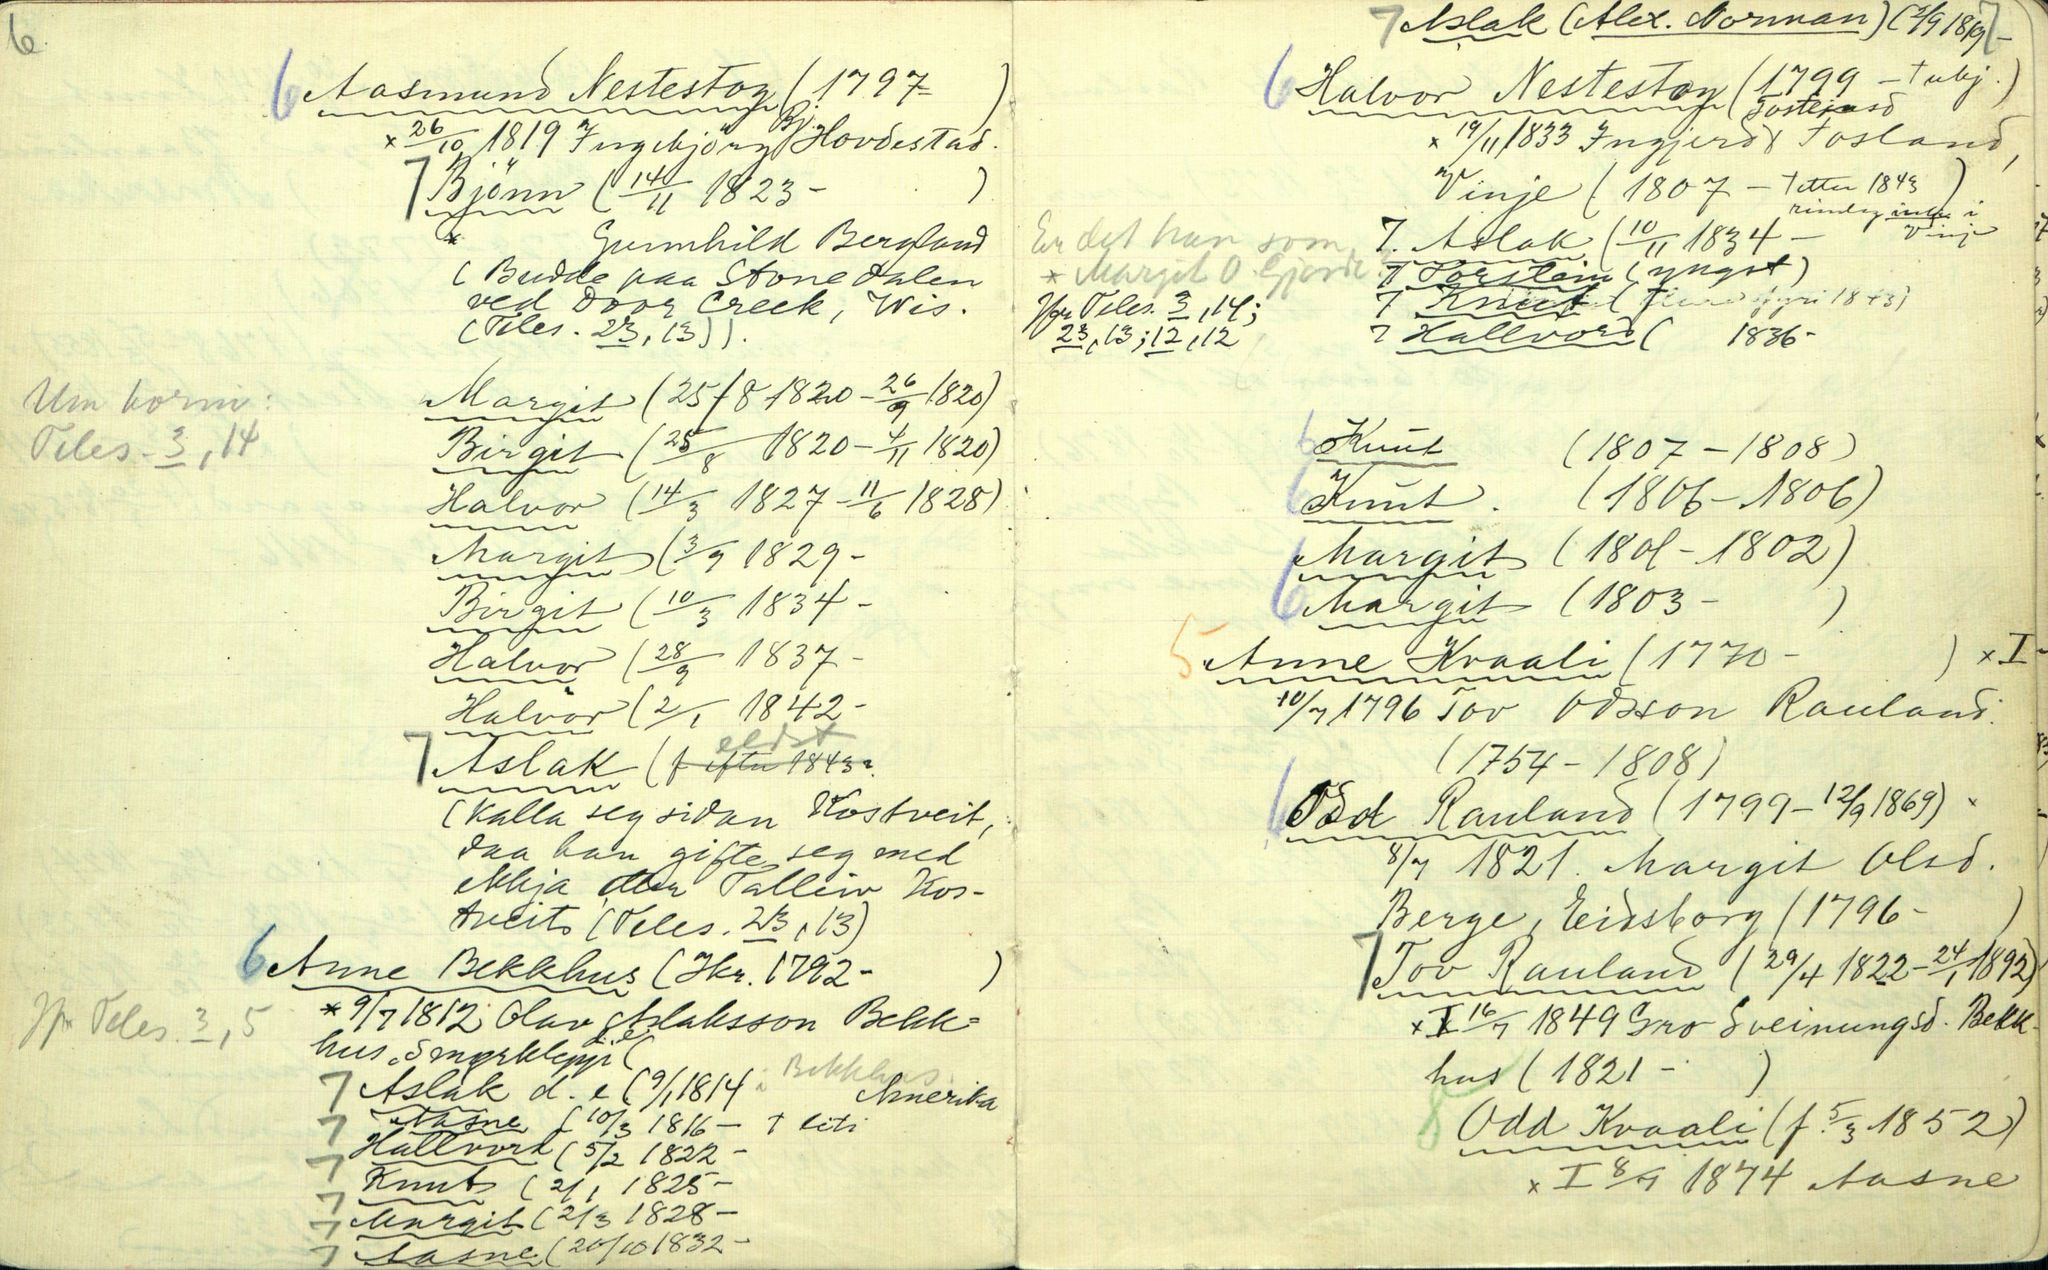 6
6 Aasmund Nestestog (1797- )
× 26/10 1819 Ingebjörg Bj. Hovdestad.
7 Bjönn (14/11 1823- )
× Gunnhild Bergland
(Budde paa Stonedalen
ved Door Creek, Wis.
(Teles. 23, 13)).
Um borni:
Teles. 3, 14
Margit (25/8 1820 - 26/9 1820)
Birgit (25/8 1820 - 4/11 1820)
Halvor (14/3 1827 - 11/6 1828)
Margit (3/9 1829-
Birgit (10/3 1834-
Halvor (28/9 1837-
Halvor (2/1 1842-
eldst
7 Aslak (f. efter 1843?
(Kalla seg sidan Kostveit,
daa han gifte seg med
ekkja etter Talleiv Kos-
tveit (Teles. 23, 13)
6 Anne Bekkhus (Skr. 1792- )
× 9/7 1812 Olav Aslaksson Bekk=
hus, d.e. Smyrkleppi (
Jfr Teles. 3, 5
7 Aslak d. e (9/1 1814 i Bekkhus Amerika
7 Aasne (10/3 1816 - † liti
7 Hallvord (5/2 1822-
7 Knut (2/1 1825-
7 Margit (2/3 1828-
7 Aasne (20/10 1832-
7 Aslak (Alex. Norman) (2/9 1819- 7
6 Halvor Nestestog (1799 - † ubj.)
× 19/11 1833 Ingjerd Tosteinsd Tosland,
Vinje (1807 - † etter 1843)
rimeleg inkje i
Vinje
7. Aslak (10/11 1834-
Er det han som
× Margit O. Gjerde?
7 Torstein (yngst)
7 Knut ( fyri 1843)
7 Hallvord ( 1836-
Jfr Teles. 3, 14;
23, 13; 12, 12
6 Knut (1807 - 1808)
6 Knut. (1806 - 1806)
6 Margit (1801 - 1802)
6 Margit (1803 - )
5 Anne Kvaali (1770 - ) × I
10/7 1796 Tov Oddsson Rauland.
(1754 - 1808)
6 Odd Rauland (1799 - 12/9 1869) ×
8/7 1821. Margit Olsd.
Berge, Eidsborg (1796 - )
7 Tov Rauland (29/4 1822 - 24/1 1892)
× I 16/7 1849 Gro Sveinungsd. Bekk-
hus (1821 - )
8 Odd Kvaali (f. 5/3 1852)
× I 8/7 1874 Aasne